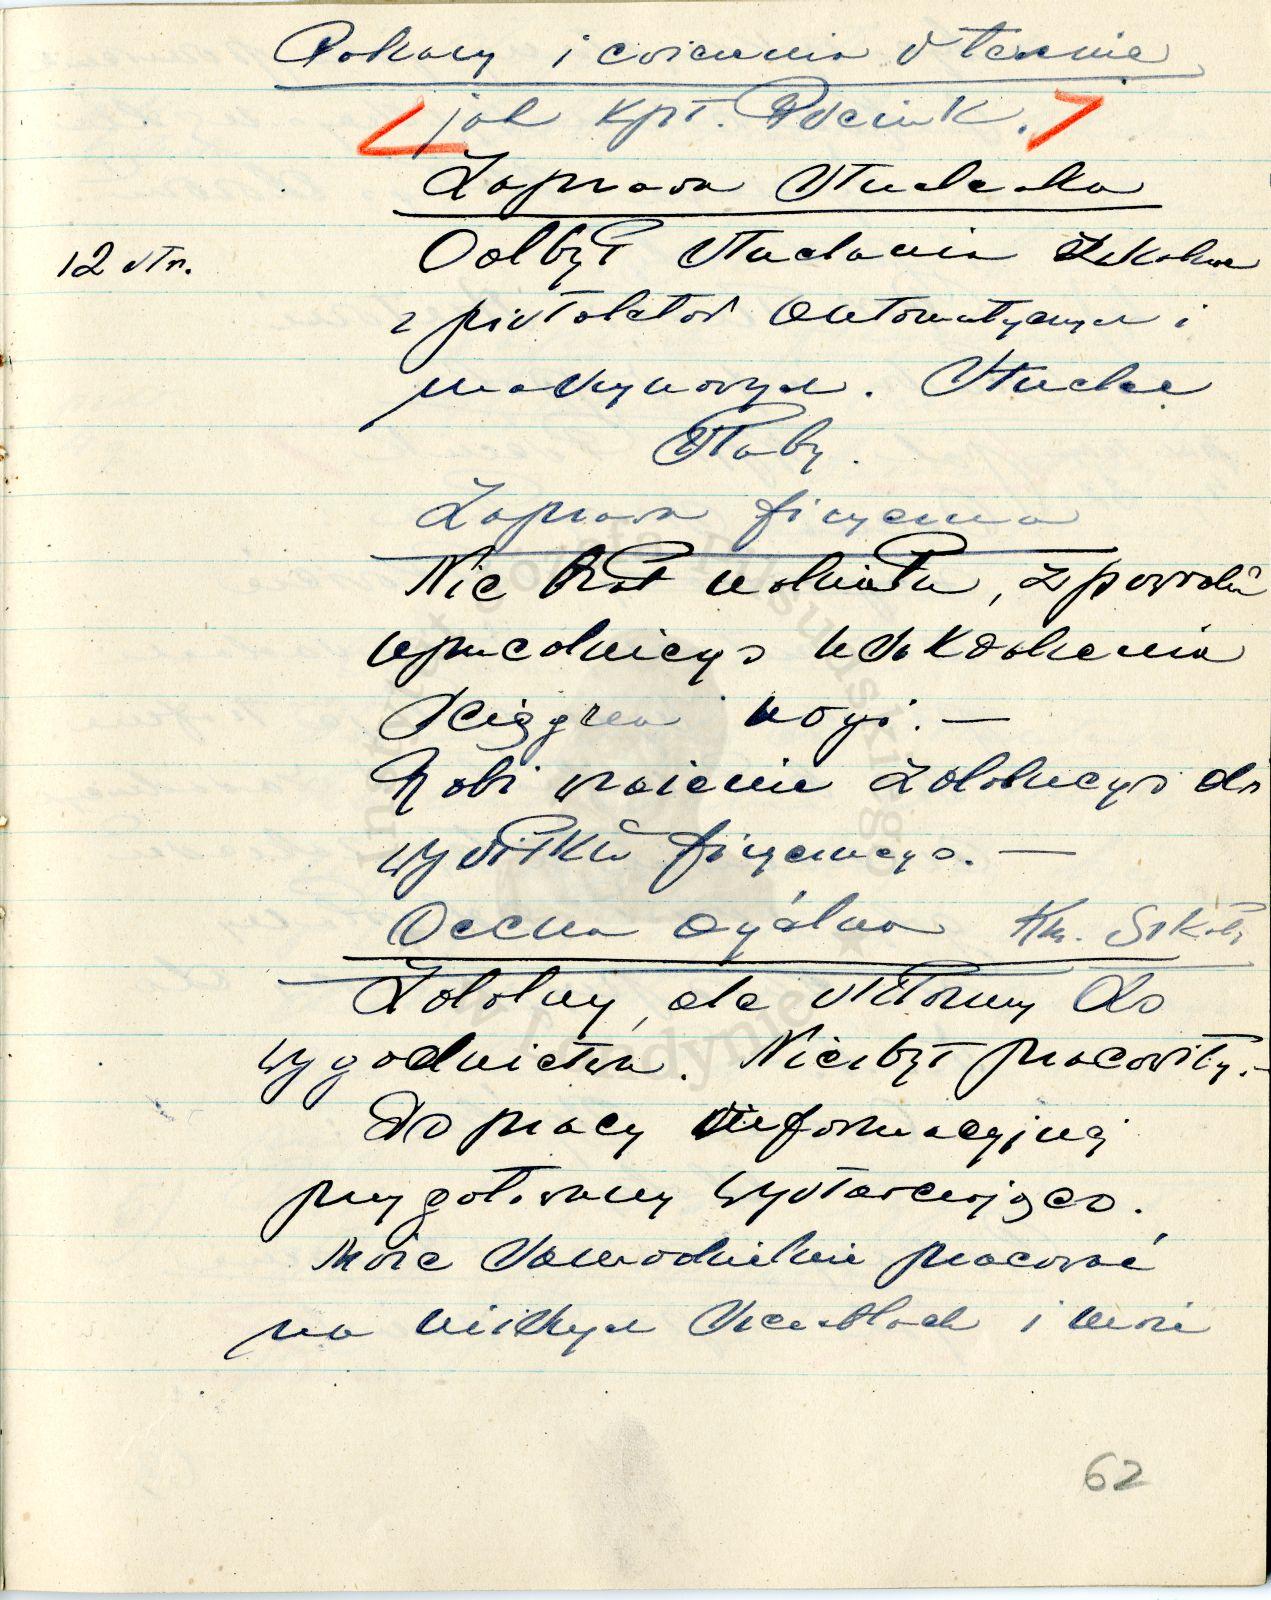 Pokazy i ćwiczenia w terenie
jak kpt.
Zaprawa strzelecka
12 str. Odbył strzelania szkolne
z pistoletów automatycznych i
maszynowych. Strzelec
słaby.
Zaprawa fizyczna
Nie brał udziału, z powodu
uprzedniego uszkodzenia
ścięgna nogi. —
Robi wrażenie zdolnego do
wysiłku fizycznego. —
Ocena ogólna Km. Szkoły
Zdolny, ale skłonny do
wygodnictwa. Nie był pracowity. —
Do pracy informacyjnej
przygotowany wystarczająco.
Może samodzielnie pracować
na niższych szczeblach i może
62